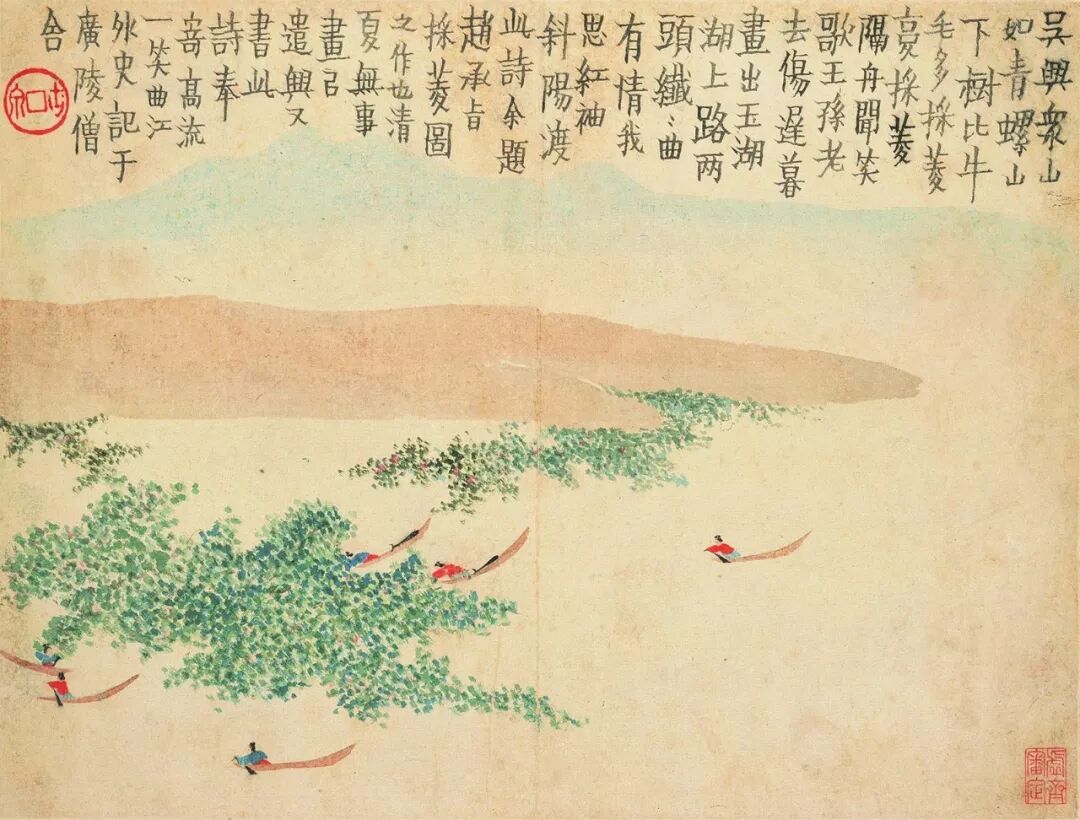 吳興衆山
如青螺山
下樹比牛
毛多採菱
复採菱
隔舟聞笑
歌王孫老
去傷遲暮
畫出玉湖
湖上路两
頭纖〻曲
有情我
思紅袖
斜陽渡
此詩余題
趙承旨
採菱圖
之作也清
夏無事
畫已
遣興又
書此
詩奉
寄髙流
一笑曲江
外史記于
廣陵僧
舍
虛齋審定